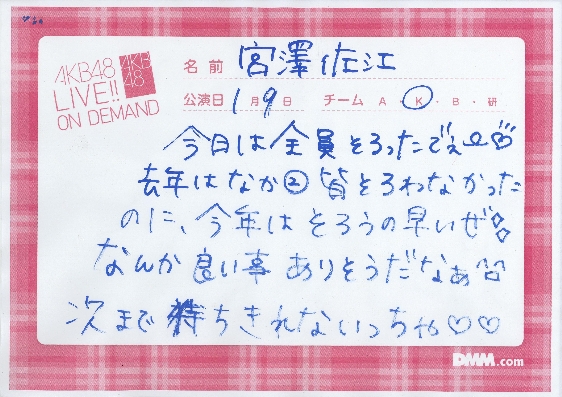 AKB48
LIVE!!
ON DEMAND
AKB
48
名前 宮澤佐江
公演日 1月9日 チーム A・K・B・研
今日は全員そろったでぇ
去年はなか②皆そろわなかった
のに、今年はそろうの早いぜ
なんか良い事ありそうだなぁ
次まで待ちきれないっちゃ♡♡
DMM.com